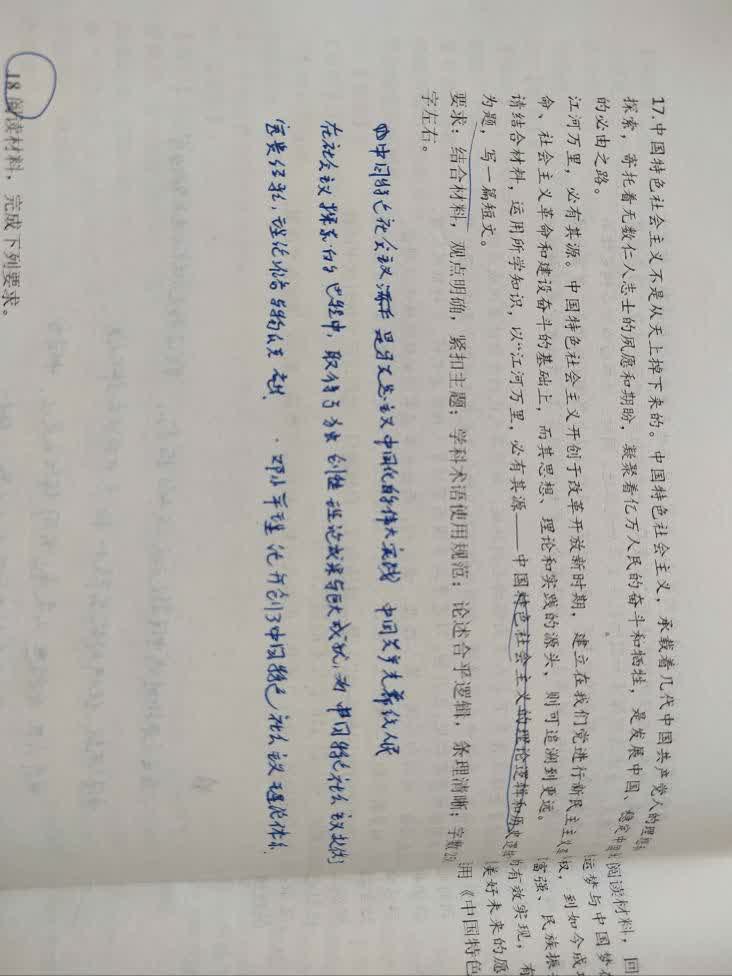 17.中国特色社会主义不是从天上掉下来的。中国特色社会主义，承载着几代中国共产党人的理想
探索，寄托着无数仁人志士的夙愿和期盼，凝聚着亿万人民的奋斗和牺牲，是发展中国、稳定中国
的必由之路。
江河万里，必有其源。中国特色社会主义开创于改革开放新时期，建立在我们党进行新民主主义
命、社会主义革命和建设奋斗的基础上，而其思想、理论和实践的源头，则可追溯到更远。
请结合材料，运用所学知识，以“江河万里，必有其源——中国特色社会主义的理论逻辑和历史逻辑
为题，写一篇短文。
要求：结合材料，观点明确，紧扣主题；学科术语使用规范；论述合乎逻辑，条理清晰；字数
字左右。
①中国特色社会主义 是马克思主义中国化的伟大实践 中国共产党带领人民
在社会主义探索的过程中，取得了独创性理论成果与巨大成就，为中国特色社会主义提供
宝贵经验，理论准备与物质基础 邓小平理论开创了中国特色社会主义理论体系
18.阅读材料，完成下列要求。
阅读材料，回
运梦与中国梦
权，到如今成
富强、民族振
有效实现，有
美好未来的愿
用《中国特色